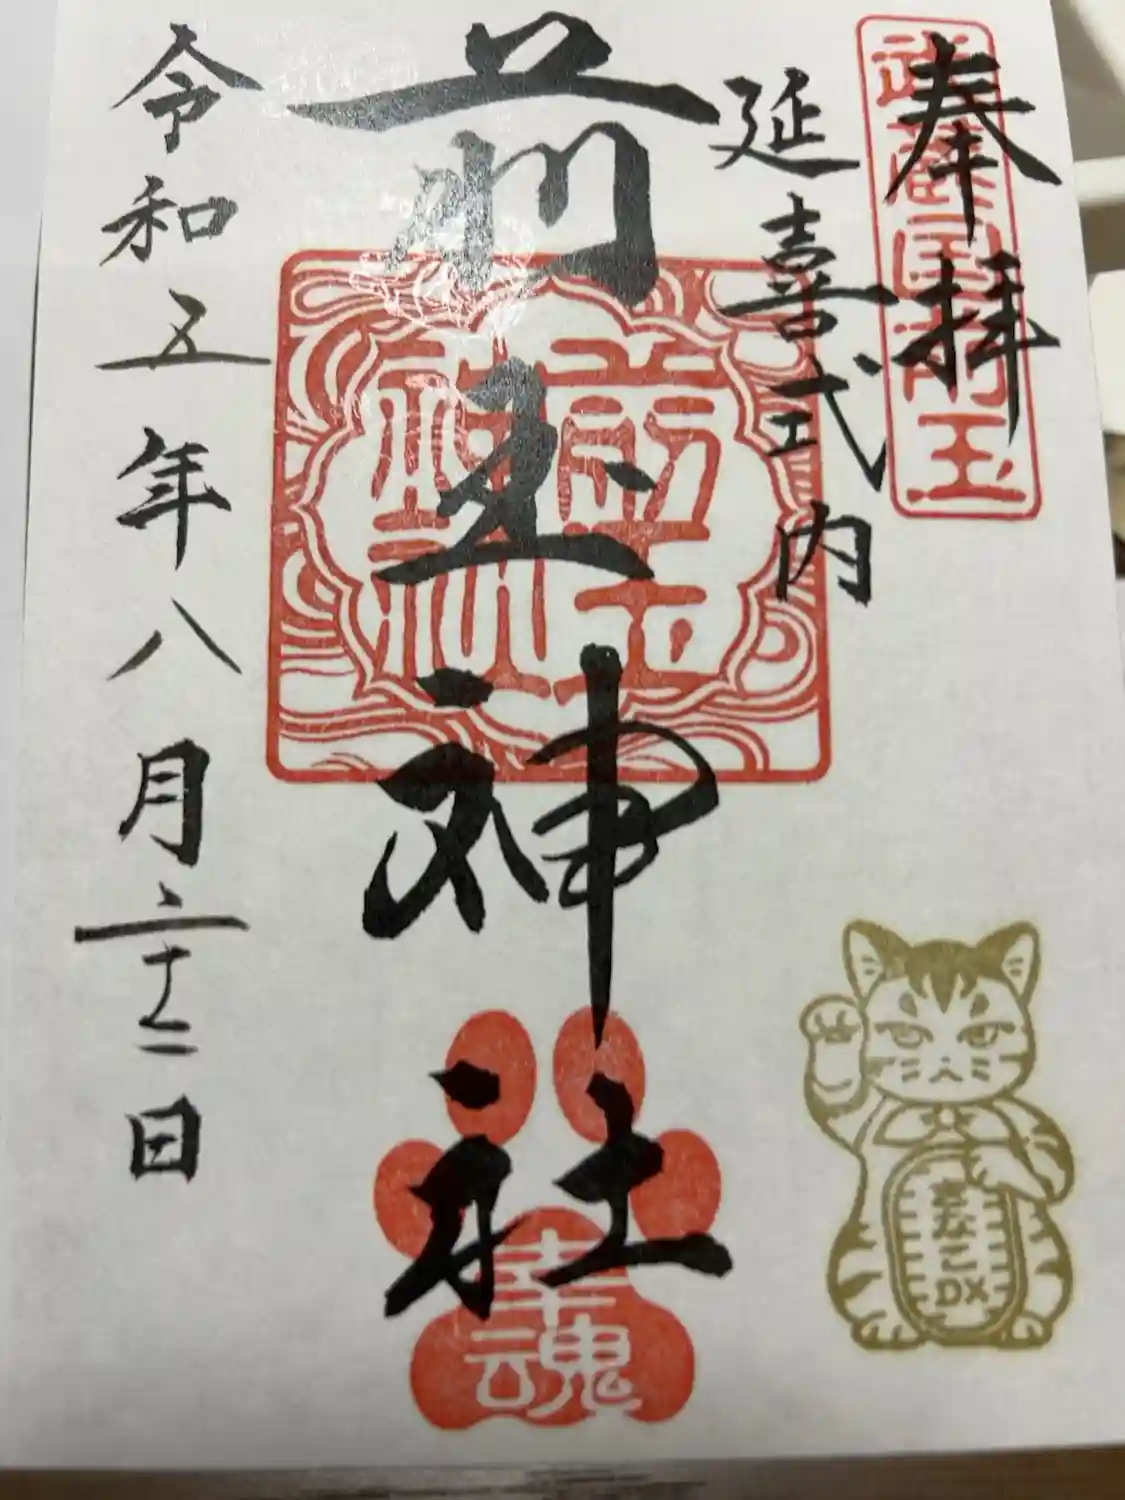 奉拝
武蔵国前玉
延喜式内
前玉神社
前玉神社
令和五年八月二十二日
幸魂
きなこ
DX